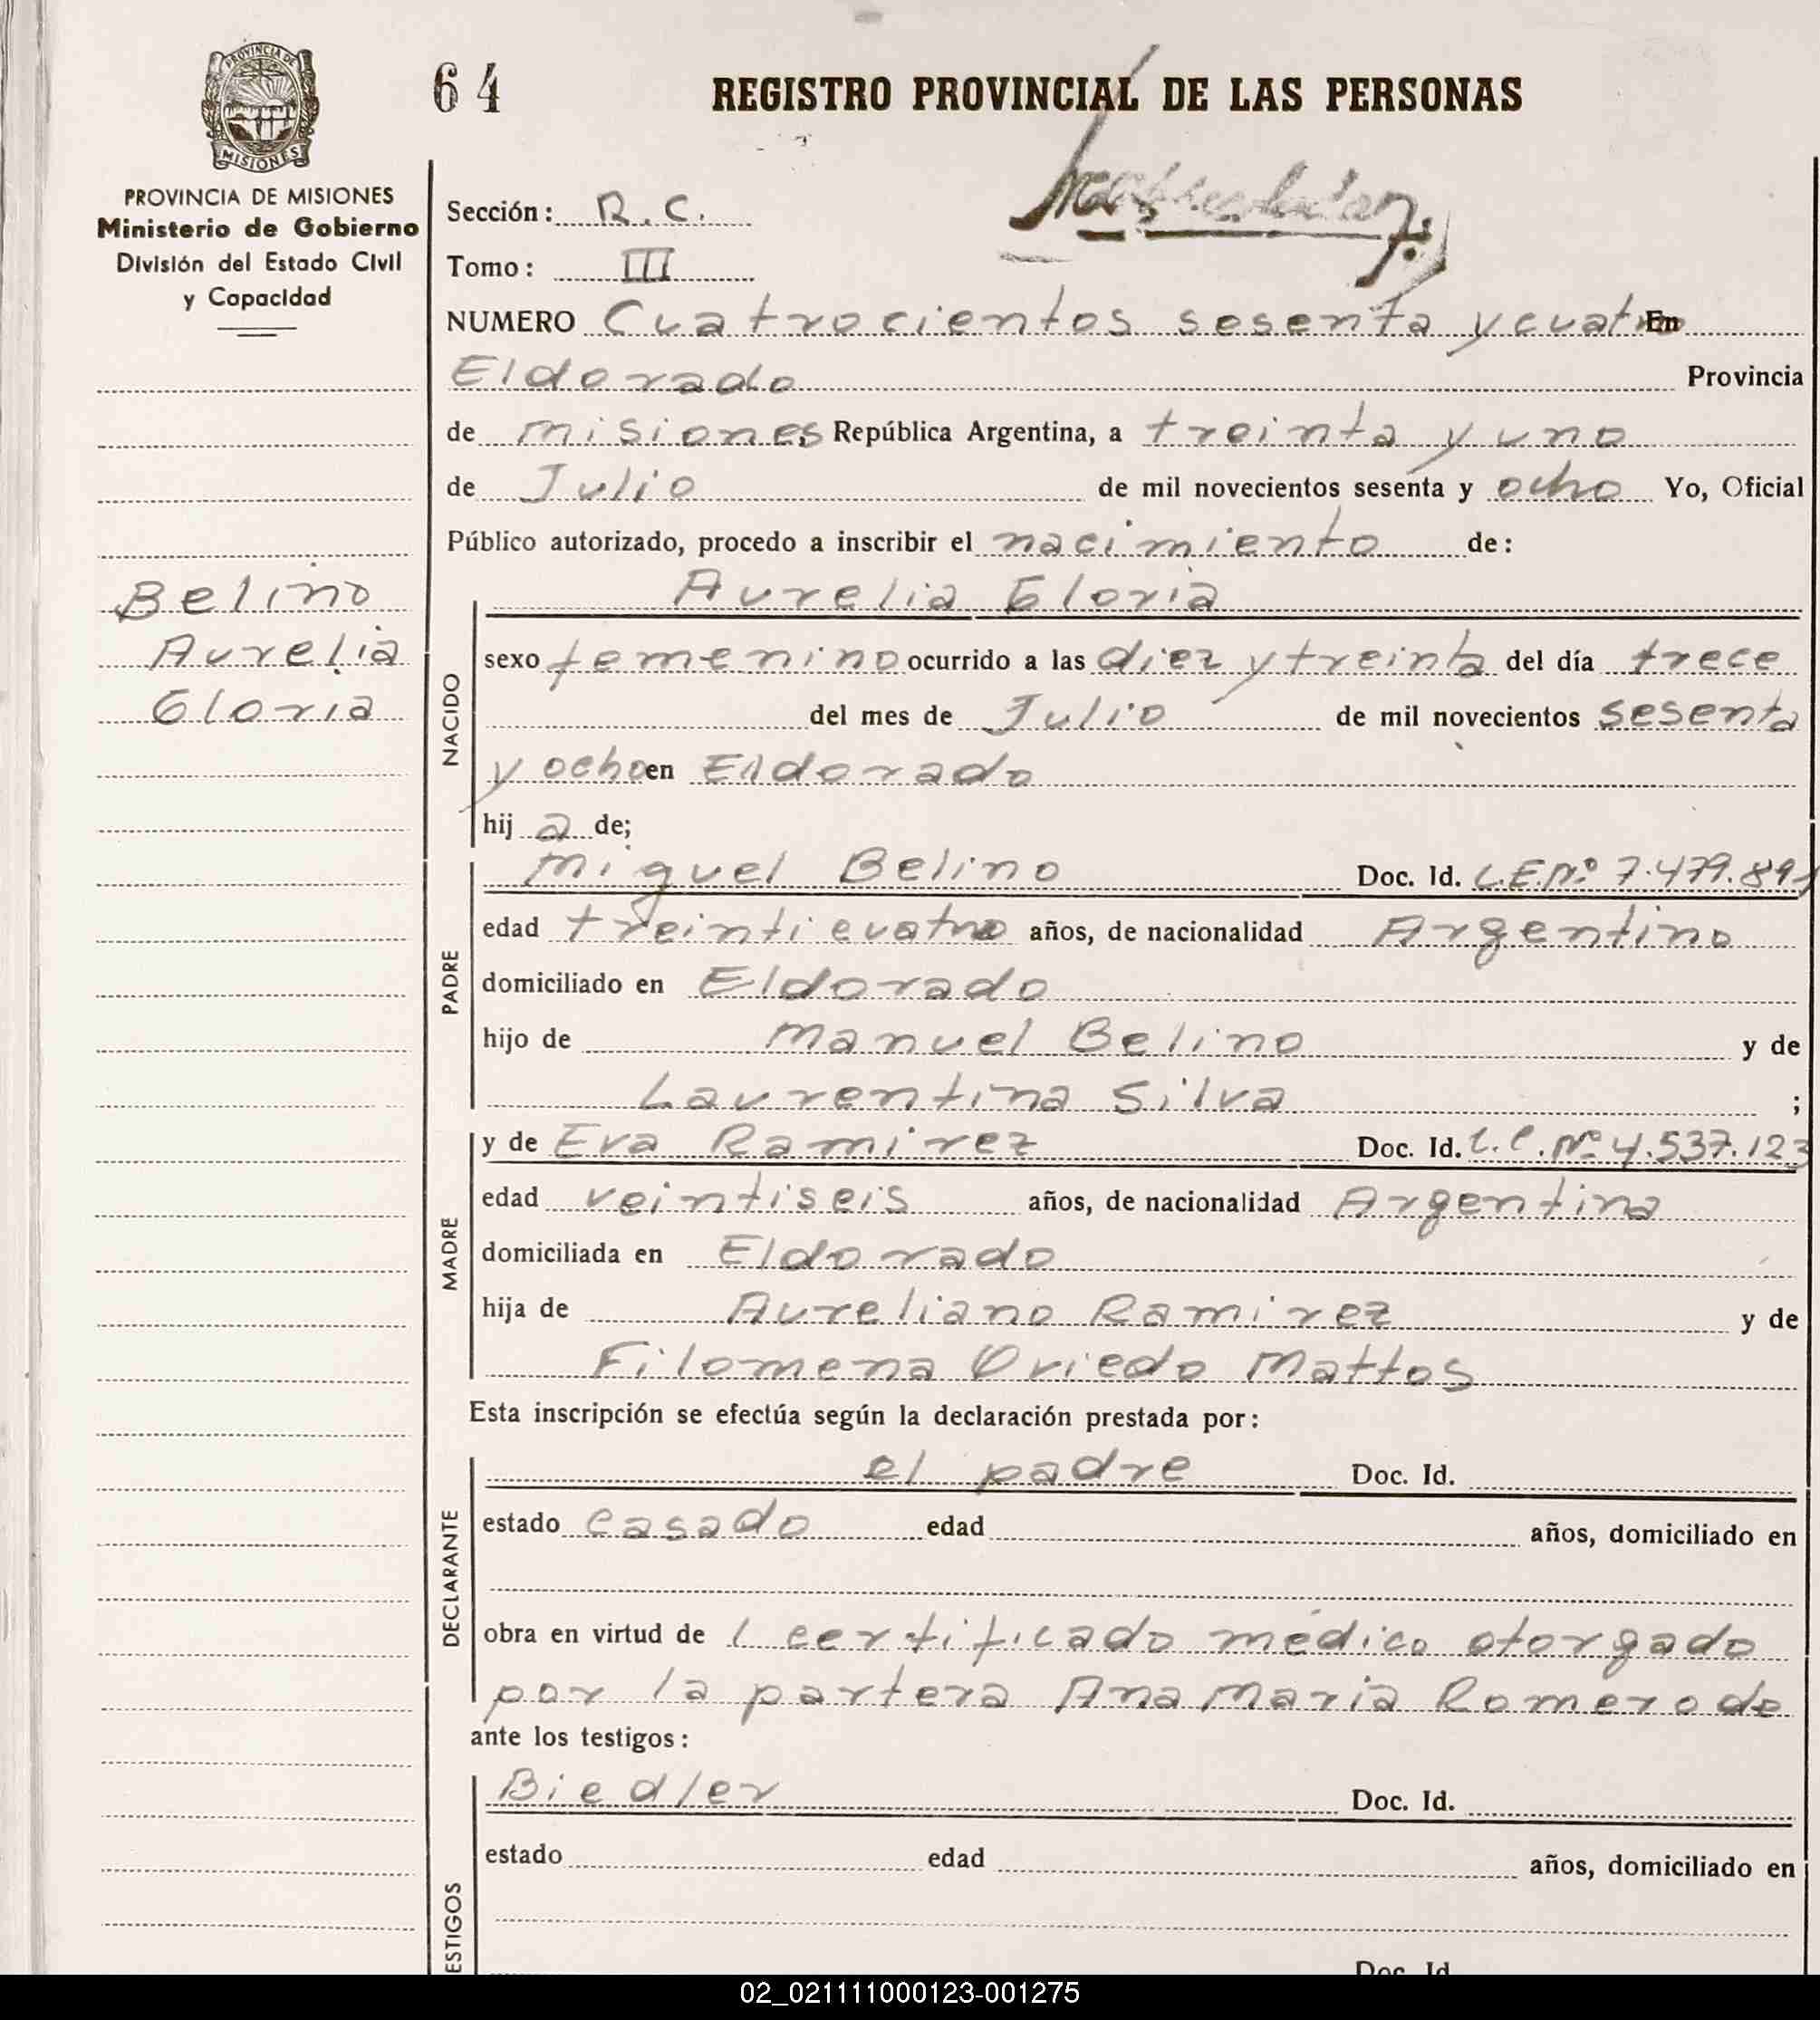 PROVINCIA DE
MISIONES
PROVINCIA DE MISIONES
Ministerio de Gobierno
División del Estado Civil
y Capacidad
Belino
Aurelia
Gloria
64
REGISTRO PROVINCIAL DE LAS PERSONAS
Sección: R.C.
Tomo: III
NUMERO Cuatrocientos sesenta y cuatro En
Eldorado Provincia
de misiones República Argentina, a treinta y uno
de Julio de mil novecientos sesenta y ocho Yo, Oficial
Público autorizado, procedo a inscribir el nacimiento de:
Aurelia Gloria
NACIDO
sexo femenino ocurrido a las diez y treinta del día trece
del mes de Julio de mil novecientos sesenta
y ocho en Eldorado
hij a de;
PADRE
Miguel Belino Doc. Id. L.E.Nº 7.479.891
edad treinticuatro años, de nacionalidad Argentino
domiciliado en Eldorado
hijo de Manuel Belino y de
Laurentina Silva ;
MADRE
y de Eva Ramirez Doc. Id. L.C.Nº 4.537.123
edad veintiseis años, de nacionalidad Argentina
domiciliada en Eldorado
hija de Aureliano Ramirez y de
Filomena Oviedo Mattos
Esta inscripción se efectúa según la declaración prestada por:
DECLARANTE
el padre Doc. Id.
estado casado edad años, domiciliado en
obra en virtud de 1 certificado médico otorgado
por la partera Ana Maria Romero de
ante los testigos:
ESTIGOS
Biedler Doc. Id.
estado edad años, domiciliado en
Doc. Id
02_021111000123-001275